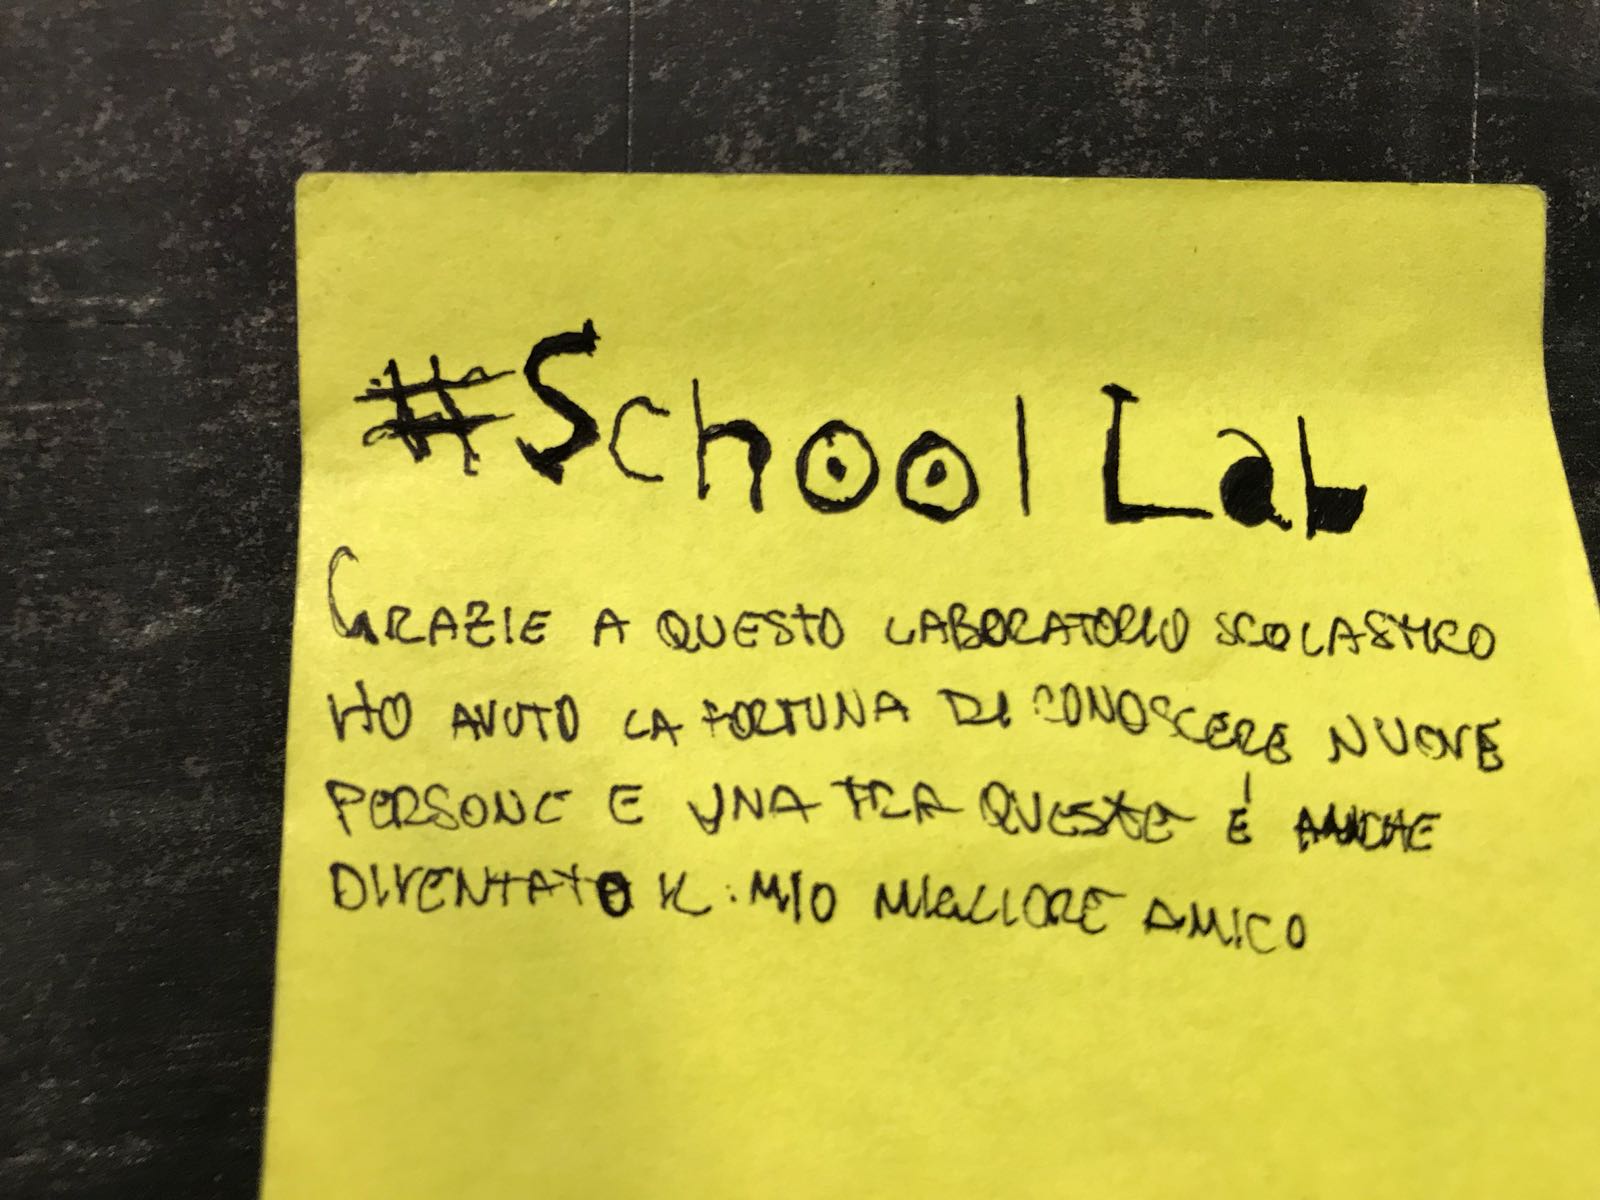 #School Lab
GRAZIE A QUESTO LABORATORIO SCOLASTICO
HO AVUTO LA FORTUNA DI CONOSCERE NUOVE
PERSONE E UNA TRA QUESTE È ANCHE
DIVENTATO IL MIO MIGLIORE AMICO